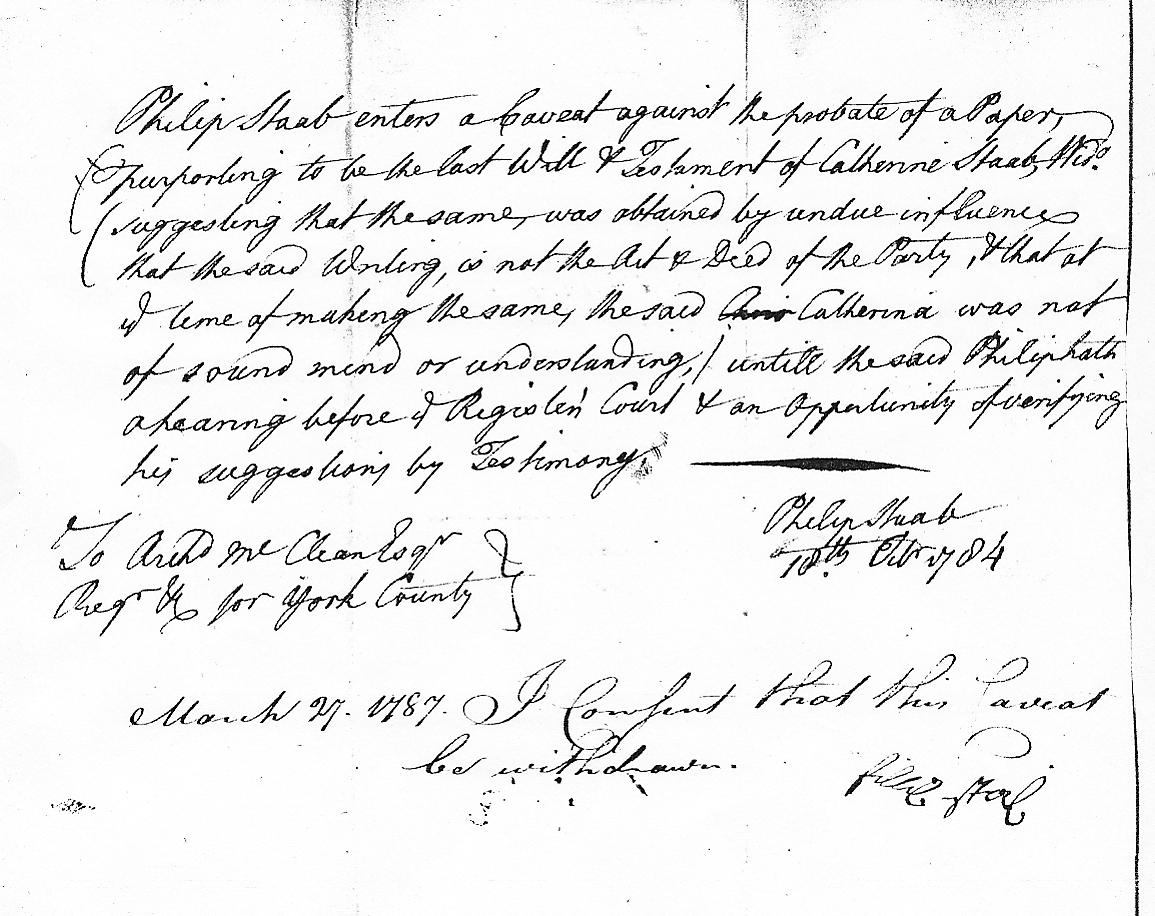 Philip Staab enters a Caveat against the probate of a Paper,
(purporting to be the last Will & Testament of Catherine Staab, Widº.
suggesting that the same, was obtained by undue influence
that the said Writing, is not the Act & Deed of the Party, & that at
yᵉ time of making the same, the said Catherina was not
of sound mind or understanding,) untill the said Philip hath
a hearing before yᵉ Register's Court & an Oppertunity of verifying
his suggestions by Testimony.
Philip Staab
18th Octbr 1784
To Archd Mc Clean Esqr
Regr &c for York County
March 27. 1787. I Consent that this Caveat
be withdrawn.